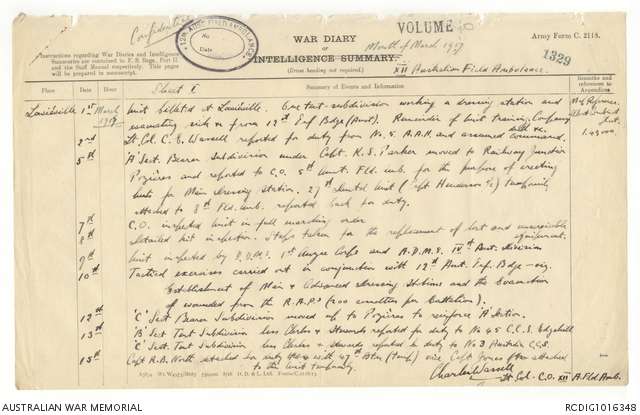 Confidential
12th AUST. FIELD AMBULANCE
No.
Date
WAR DIARY
or
INTELLIGENCE SUMMARY.
(Erase heading not required).
VOLUME
Month of March 1917
XII Australian Field Ambulance.
Army Form C. 2118.
1329
Instructions regarding War Diaries and Intelligence
Summaries are contained in F. S. Regs., Part II.
and the Staff Manual respectively. Title pages
will be prepared in manuscript.
Sheet 1
Place Date Hour Summary of Events and Information Remarks and references to Appendices
Laviéville 1st March 1917 Unit billeted at Laviéville. One tent subdivision working a dressing station and
evacuating sick from 12th Inf Bdge (Aust). Remainder of Unit Training, Company drill &c.
2nd Lt. Col. C. E. Wassell reported for duty from No. 5. A.A.H. and assumed command.
5th 'A' Sect. Bearer Subdivision under Capt. K. S. Parker moved to Railway Junction
Pozières and reported to C.O. 5th Aust. Fld. Amb. for the purpose of erecting
huts for Main Dressing Station. (Capt Henderson) temporarily
attached to 8th Fld. Amb. reported back for duty.
7th C.O. inspected Unit in full marching order
8th Detailed kit inspection. Steps taken for the replacement of lost and unserviceable equipment.
9th Unit inspected by D.D.M.S. 1st Anzac Corps and A.D.M.S. IVth Aust. Division
10th Tactical exercises carried out in conjunction with 12th Aust. Inf. Bdge - viz.
Establishment of Main & Advanced Dressing Stations and the Evacuation
of wounded from the R.A.P's (200 casualties per Battalion).
12th 'C' Sect. Bearer Subdivision moved up to Pozières to reinforce 'A' Section.
13th 'B' Sect. Tent Subdivision less Clerks & Stewards reported for duty to No 45 C.C.S. Edgehill
'C' Sect. Tent Subdivision less Clerks & Stewards reported for duty to No 3 Australian C.C.S.
15th Capt R.B. North detached for duty with 47th Btn (temp) vice Capt Jones who attached
to the Unit temporarily.
Charles Wassell
Lt. Col. C.O. XII A. Fld Amb.
AUSTRALIAN WAR MEMORIAL
RCDIG1016348